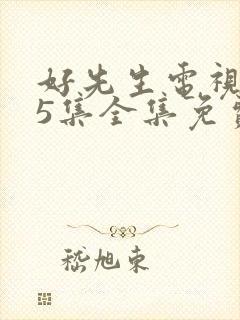 好先生電視
5集全集免費
嵇旭東